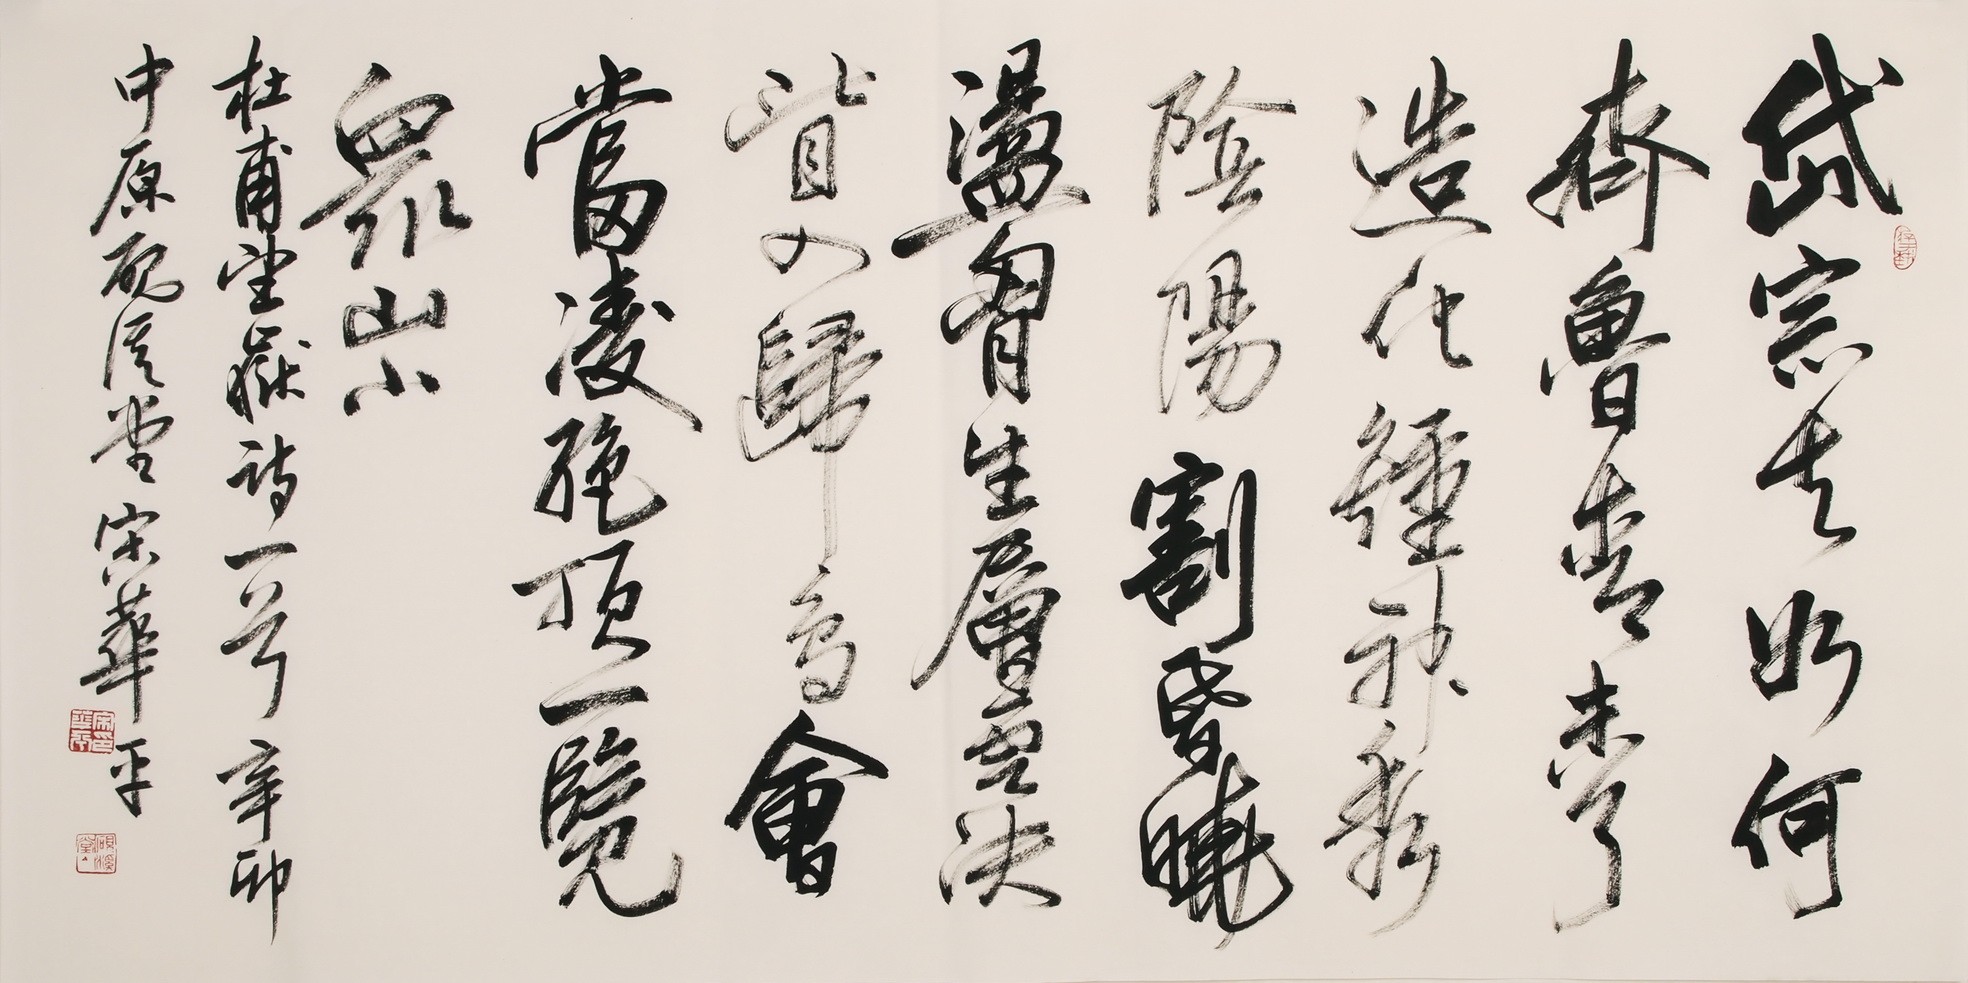 岱宗夫如何
齊魯青未了
造化鍾神秀
陰陽割昏曉
盪胷生層雲決
眥入歸鳥會
當凌絕頂一覽
眾山小
杜甫望嶽詩一首 辛卯
中原硯溪堂宋華平
宋印華平
硯溪堂